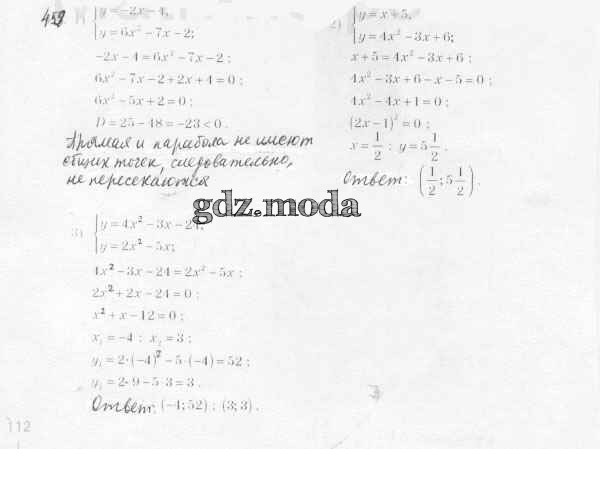 459
y = -2x - 4,
y = 6x² - 7x - 2;
-2x - 4 = 6x² - 7x - 2 ;
6x² - 7x - 2 + 2x + 4 = 0 ;
6x² - 5x + 2 = 0 ;
D = 25 - 48 = -23 < 0 .
Прямая и парабола не имеют
общих точек, следовательно,
не пересекаются
2)
y = x + 5,
y = 4x² - 3x + 6;
x + 5 = 4x² - 3x + 6 ;
4x² - 3x + 6 - x - 5 = 0 ;
4x² - 4x + 1 = 0 ;
(2x - 1)² = 0 ;
x = 1/2 ; y = 5 1/2 .
Ответ: (1/2 ; 5 1/2) .
gdz.moda
3)
y = 4x² - 3x - 24,
y = 2x² - 5x;
4x² - 3x - 24 = 2x² - 5x ;
2x² + 2x - 24 = 0 ;
x² + x - 12 = 0 ;
x₁ = -4 ; x₂ = 3 ;
y₁ = 2·(-4)² - 5·(-4) = 52 ;
y₂ = 2·9 - 5·3 = 3 .
Ответ: (-4; 52) ; (3; 3) .
112